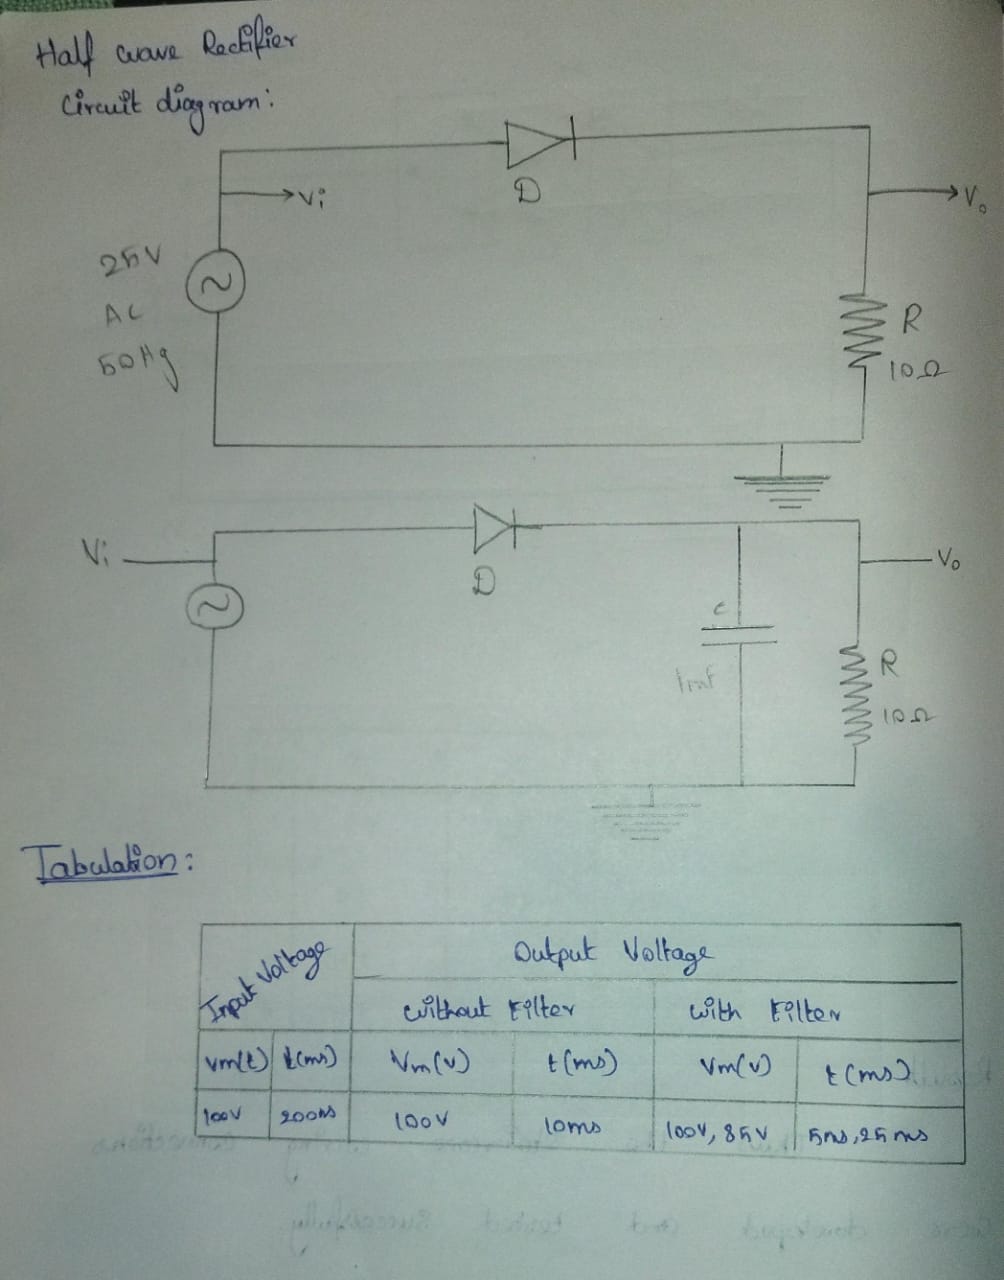 Half wave Rectifier
Circuit diagram:
D
Vi
Vo
25V
AC
50Hz
R
10Ω
Vi
D
Vo
C
1mf
R
10Ω
Tabulation:
Input Voltage
Output Voltage
without Filter
with Filter
Vm(t) t(ms) Vm(v) t(ms) Vm(v) t(ms)
100V 200ms 100V 10ms 100V, 85V 5ms, 25ms